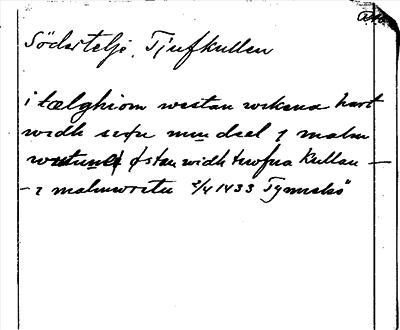 Södertelje, Tjufkullen
i tælghiom westan wikena hart
widh sin mun deel j malm
østan widh twfua kullan —
— i malmwretu 2/4 1433 Tynnelsö